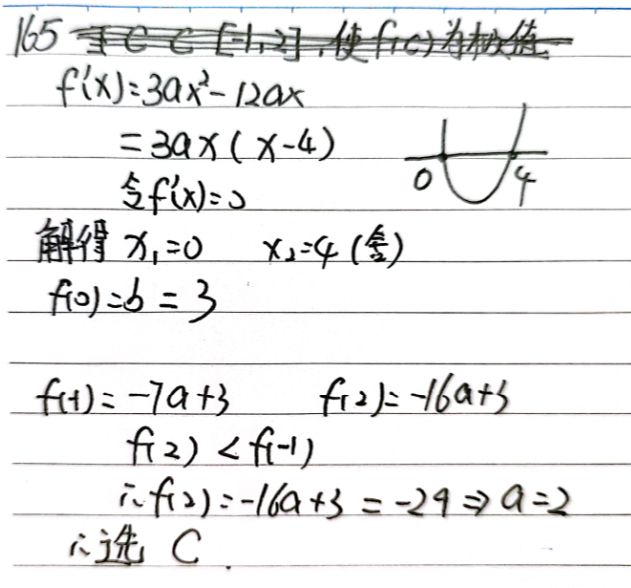 165 ∃ C ∈ [-1,2],使f(c)为极值
f'(x)=3ax²-12ax
=3ax(x-4)
0 4
令f'(x)=0
解得 x₁=0 x₂=4(舍)
f(0)=b=3
f(-1)=-7a+3 f(2)=-16a+3
f(2)<f(-1)
∴f(2)=-16a+3=-29⇒a=2
∴选 C.